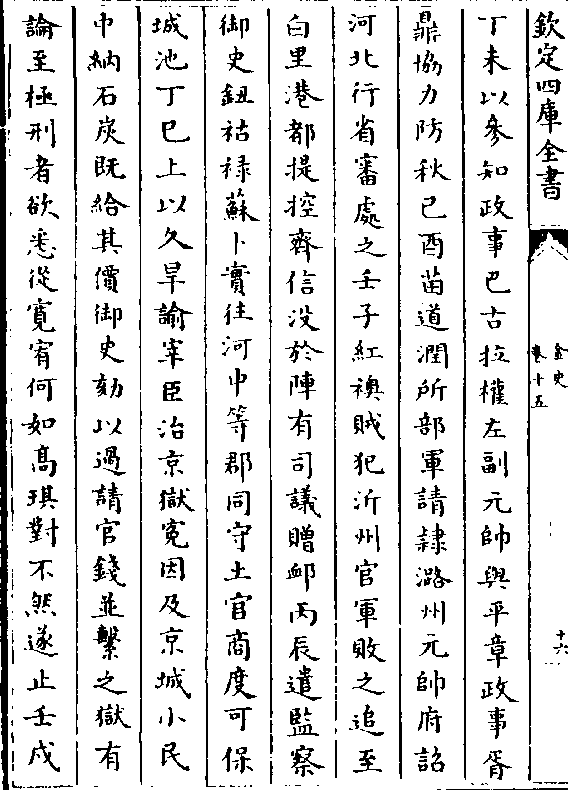 欽定四庫全書
金史
卷十五
十六
丁未以參知政事巴古拉權左副元帥與平章政事胥
鼎協力防秋己酉苗道潤所部軍請隷潞州元帥府詔
河北行省審處之壬子紅襖賊犯沂州官軍敗之追至
白里港都提控齊信没於陣有司議贈䘏丙辰遣監察
御史鈕祜祿蘇卜實往河中等郡同守土官商度可保
城池丁巳上以久旱諭宰臣治京獄寃因及京城小民
中納石炭既給其價御史劾以過請官錢並繫之獄有
論至極刑者欲悉從寬宥何如髙琪對不然遂止壬戍